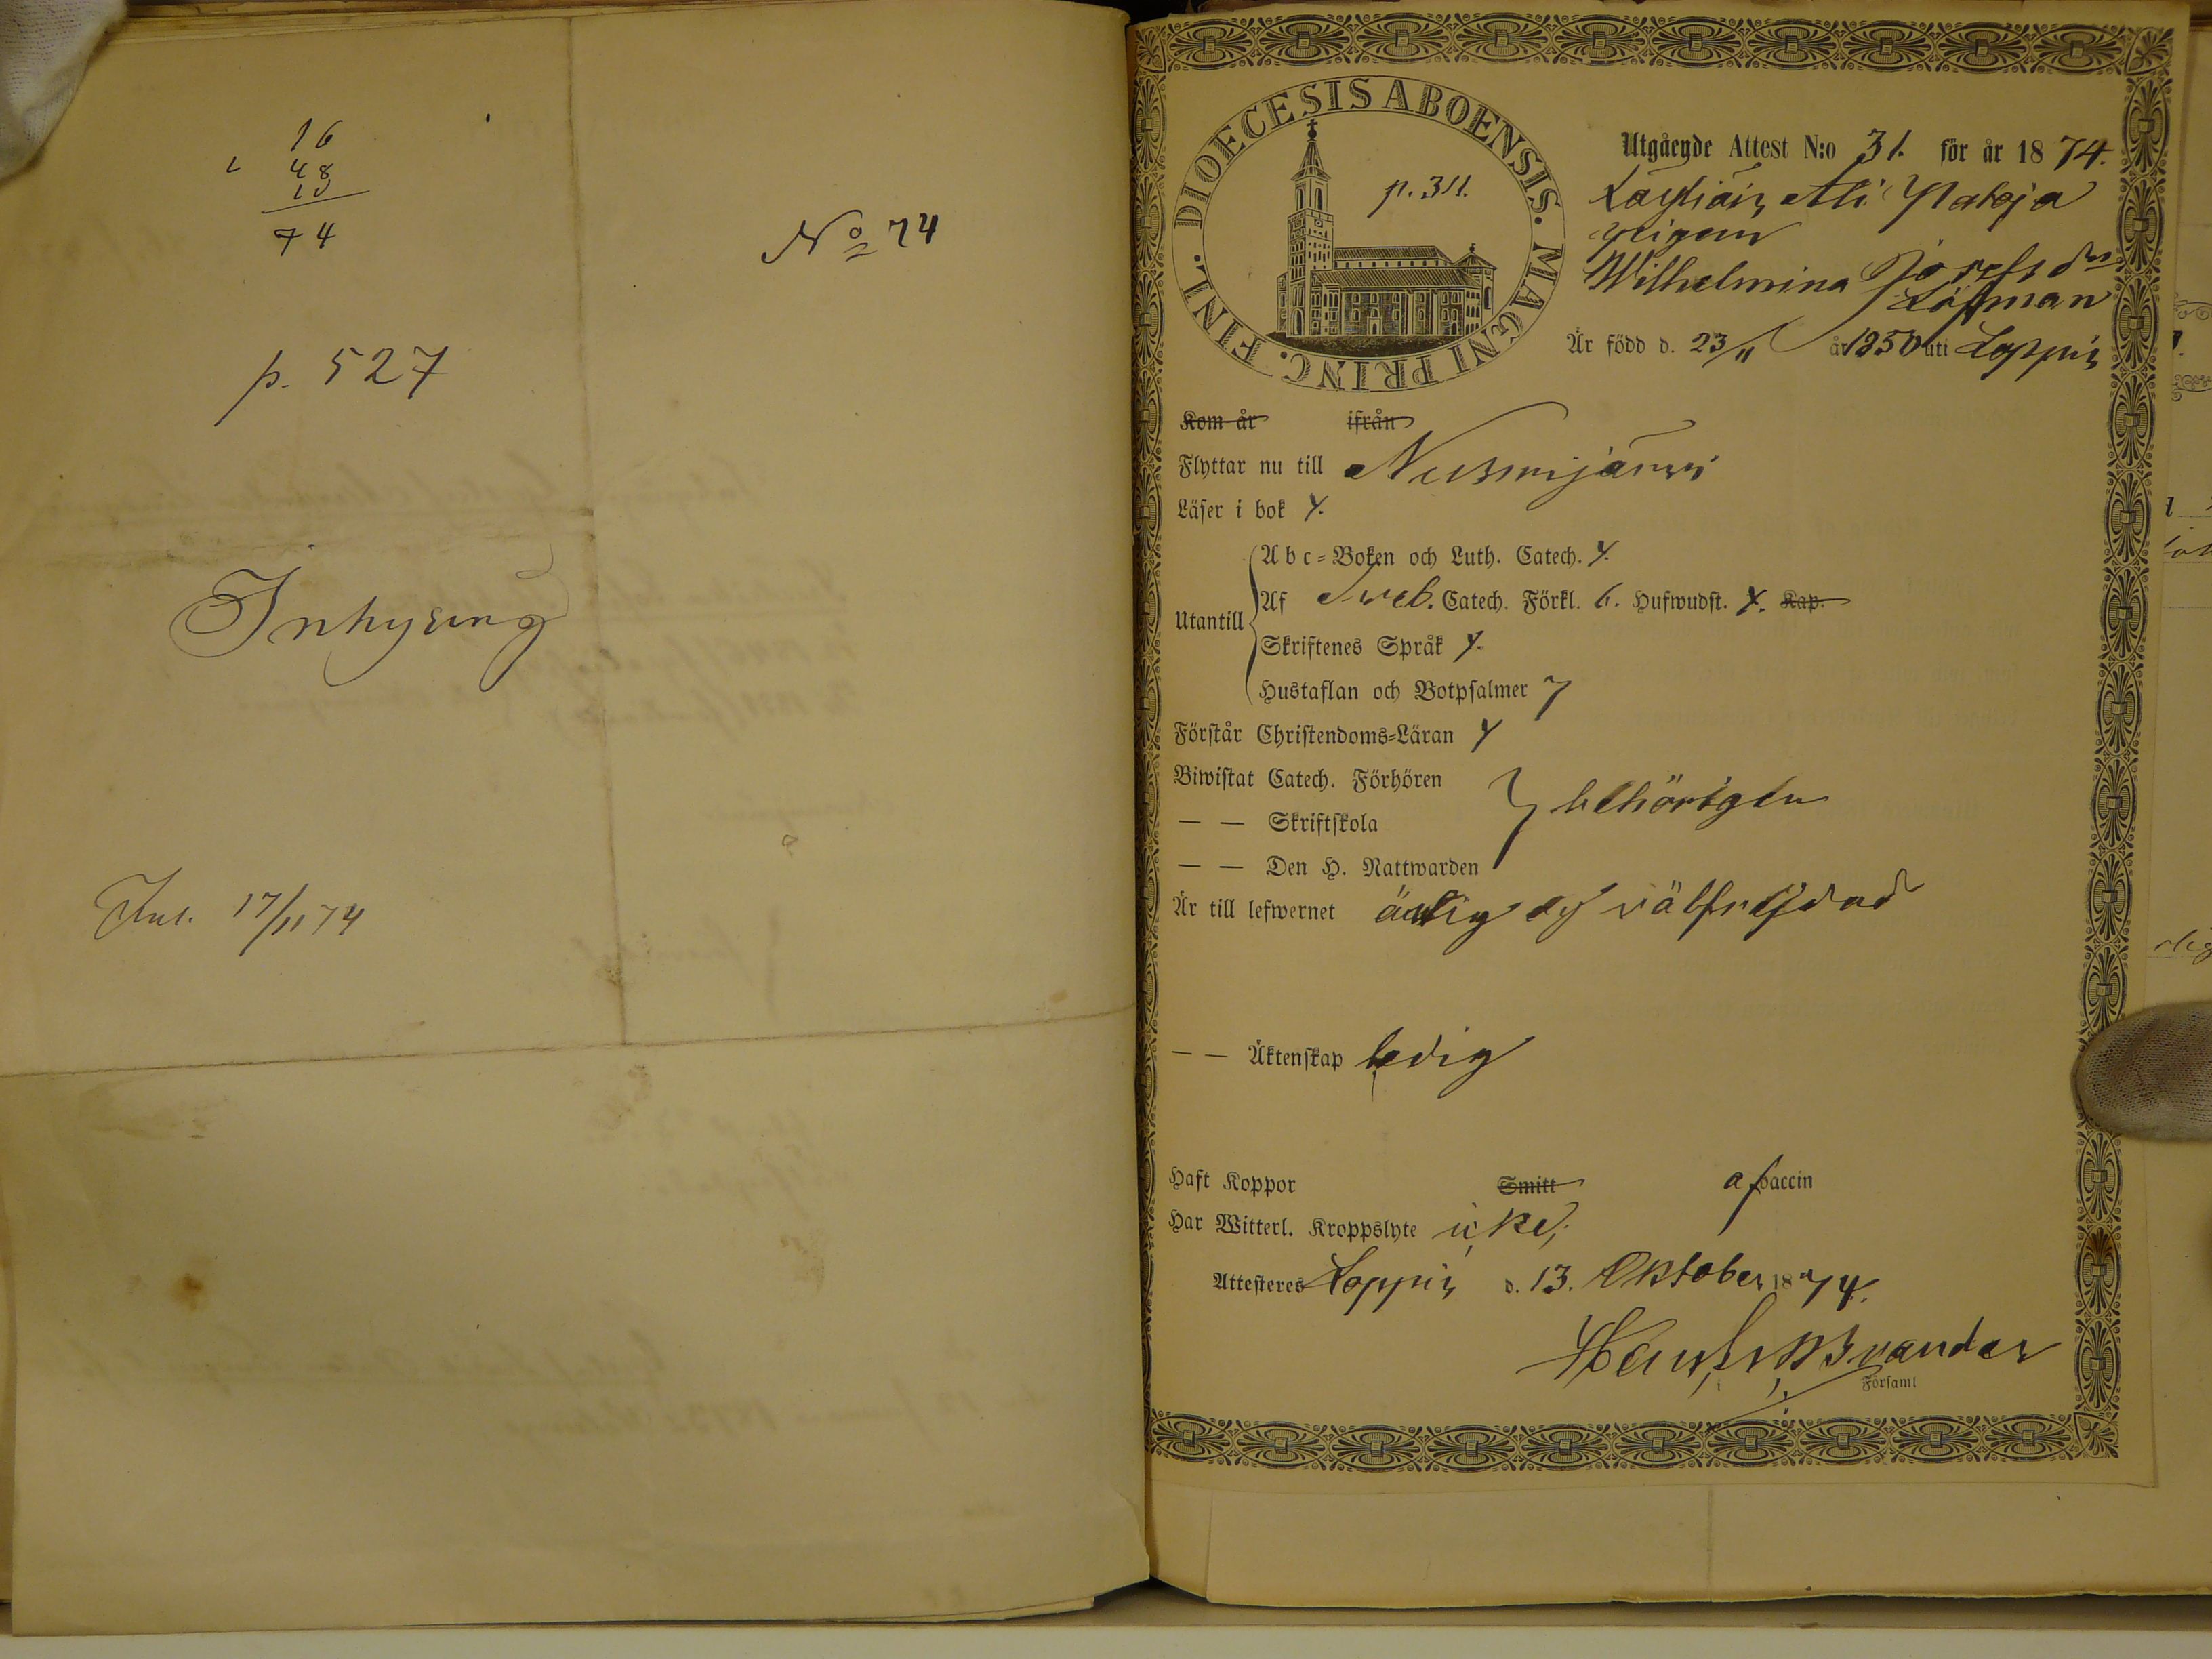 16
48
10
74
No 74
p. 527
Inhysing
Ink. 17/11 74
DIOECESIS ABOENSIS. MAGNI PRINC. FINL.
p. 311.
Utgående Attest N:o 31. för år 1874.
Ali
pigan
Wilhelmina Josefsdr
Löfman
Är född d. 23/11 år 1850 uti Loppis
Kom år ifrån
Flyttar nu till Nurmijärvi
Läser i bok
Utantill
Abc=Boken och Luth. Catech.
Af Sveb. Catech. Förkl. 6. Hufwudst. Kap.
Skriftenes Språk
Hustaflan och Botpsalmer
Förstår Christendoms=Läran
Biwistat Catech. Förhören
— — Skriftskola
behörigen
— — Den H. Nattwarden
Är till lefwernet ärlig och välfrejdad
— — Äktenskap ledig
Haft Koppor Smitt af vaccin
Har Witterl. Kroppslyte icke,
Attesteres Loppis d. 13. Oktober 1874.
Församl